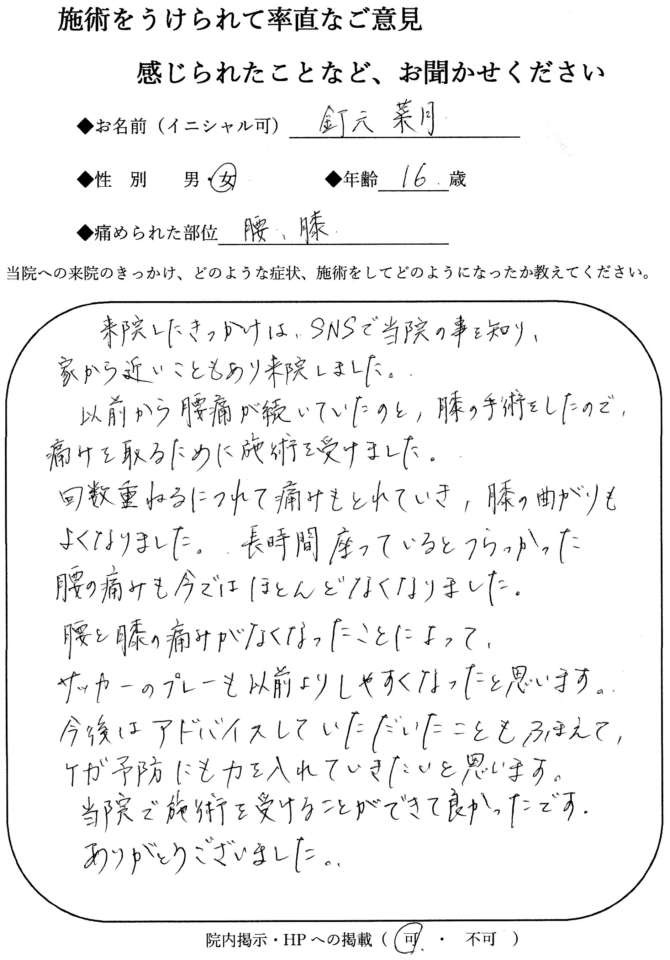 施術をうけられて率直なご意見
感じられたことなど、お聞かせください
◆お名前（イニシャル可） 釘元 菜月
◆性 別 男・女 ◆年齢 16 歳
◆痛められた部位 腰、膝
当院への来院のきっかけ、どのような症状、施術をしてどのようになったか教えてください。
来院したきっかけは、SNSで当院の事を知り、
家から近いこともあり来院しました。
以前から腰痛が続いていたのと、膝の手術をしたので、
痛みを取るために施術を受けました。
回数重ねるにつれて痛みもとれていき、膝の曲がりも
よくなりました。長時間座っているとつらかった
腰の痛みも今ではほとんどなくなりました。
腰と膝の痛みがなくなったことによって、
サッカーのプレーも以前よりしやすくなったと思います。
今後はアドバイスしていただいたこともふまえて、
ケガ予防にも力を入れていきたいと思います。
当院で施術を受けることができて良かったです.
ありがとうございました。
院内掲示・HPへの掲載（ 可 ・ 不可 ）